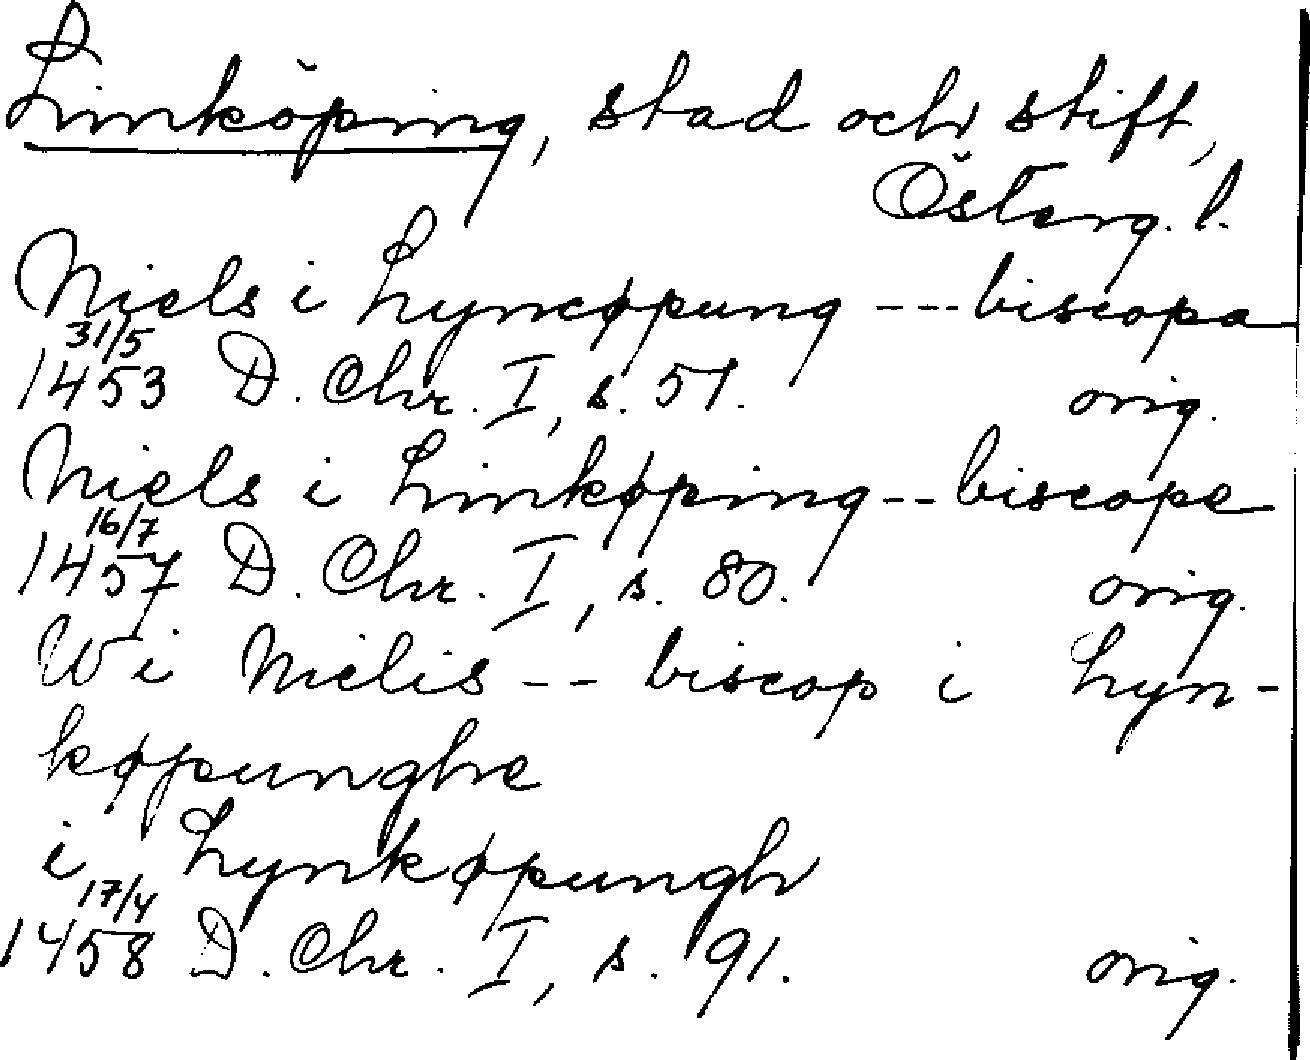 Linköping, stad och stift,
Österg. l.
Niels i Lyncøpung --- biscopa
31/5
1453 D. Chr. I, s. 51. orig.
Niels i Linkøping -- biscope
16/7
1457 D. Chr. I, s. 80. orig.
Wi Nielis -- biscop i Lyn-
køpunghe
i Lynkøpungh
17/4
1458 D. Chr. I, s. 91. orig.